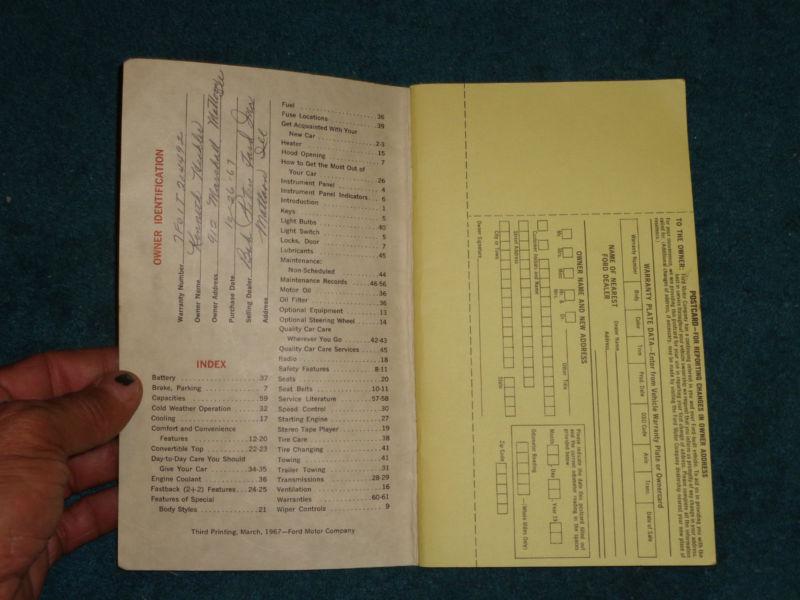 OWNER IDENTIFICATION
Warranty Number
Owner Name
Owner Address 912 Marshall Mattoon
Purchase Date
Selling Dealer
Address Mattoon Ill
INDEX
Battery 37
Brake, Parking 7
Capacities 59
Cold Weather Operation 32
Cooling 17
Comfort and Convenience
Features 12-20
Convertible Top 22-23
Day-to-Day Care You Should
Give Your Car 34-35
Engine Coolant 36
Fastback (2+2) Features 24-25
Features of Special
Body Styles 21
Fuel 36
Fuse Locations 39
Get Acquainted With Your
New Car 2-3
Heater 15
Hood Opening 7
How to Get the Most Out of
Your Car 26
Instrument Panel 4
Instrument Panel Indicators 6
Introduction 1
Keys 5
Light Bulbs 40
Light Switch 5
Locks, Door 7
Lubricants 45
Maintenance:
Non-Scheduled 44
Maintenance Records 46-56
Motor Oil 36
Oil Filter 36
Optional Equipment 13
Optional Steering Wheel 14
Quality Car Care
Wherever You Go 42-43
Quality Car Care Services 45
Radio 18
Safety Features 8-11
Seats 20
Seat Belts 10-11
Service Literature 57-58
Speed Control 30
Starting Engine 27
Stereo Tape Player 19
Tire Care 38
Tire Changing 41
Towing 41
Trailer Towing 31
Transmissions 28-29
Ventilation 16
Warranties 60-61
Wiper Controls 9
Third Printing, March, 1967—Ford Motor Company
POSTCARD—FOR REPORTING CHANGES IN OWNER ADDRESS
TO THE OWNER:
WARRANTY PLATE DATA—Enter from Vehicle Warranty Plate or Ownercard
Warranty Number Body Color Trim Prod. Date DSO Code Axle Trans. Date of Sale
NAME OF NEAREST
FORD DEALER
Dealer Name
Address
OWNER NAME AND NEW ADDRESS
Mr. Mrs. Miss Mr. & Mrs. Dr. Other Title
Customer Initials and Name
Street Address
City or Town State Zip Code
Owner Signature
Please indicate the date this postcard filled out
and the current odometer reading in the spaces
provided below
Month Day Year 19
Odometer Reading
(Whole Miles Only)